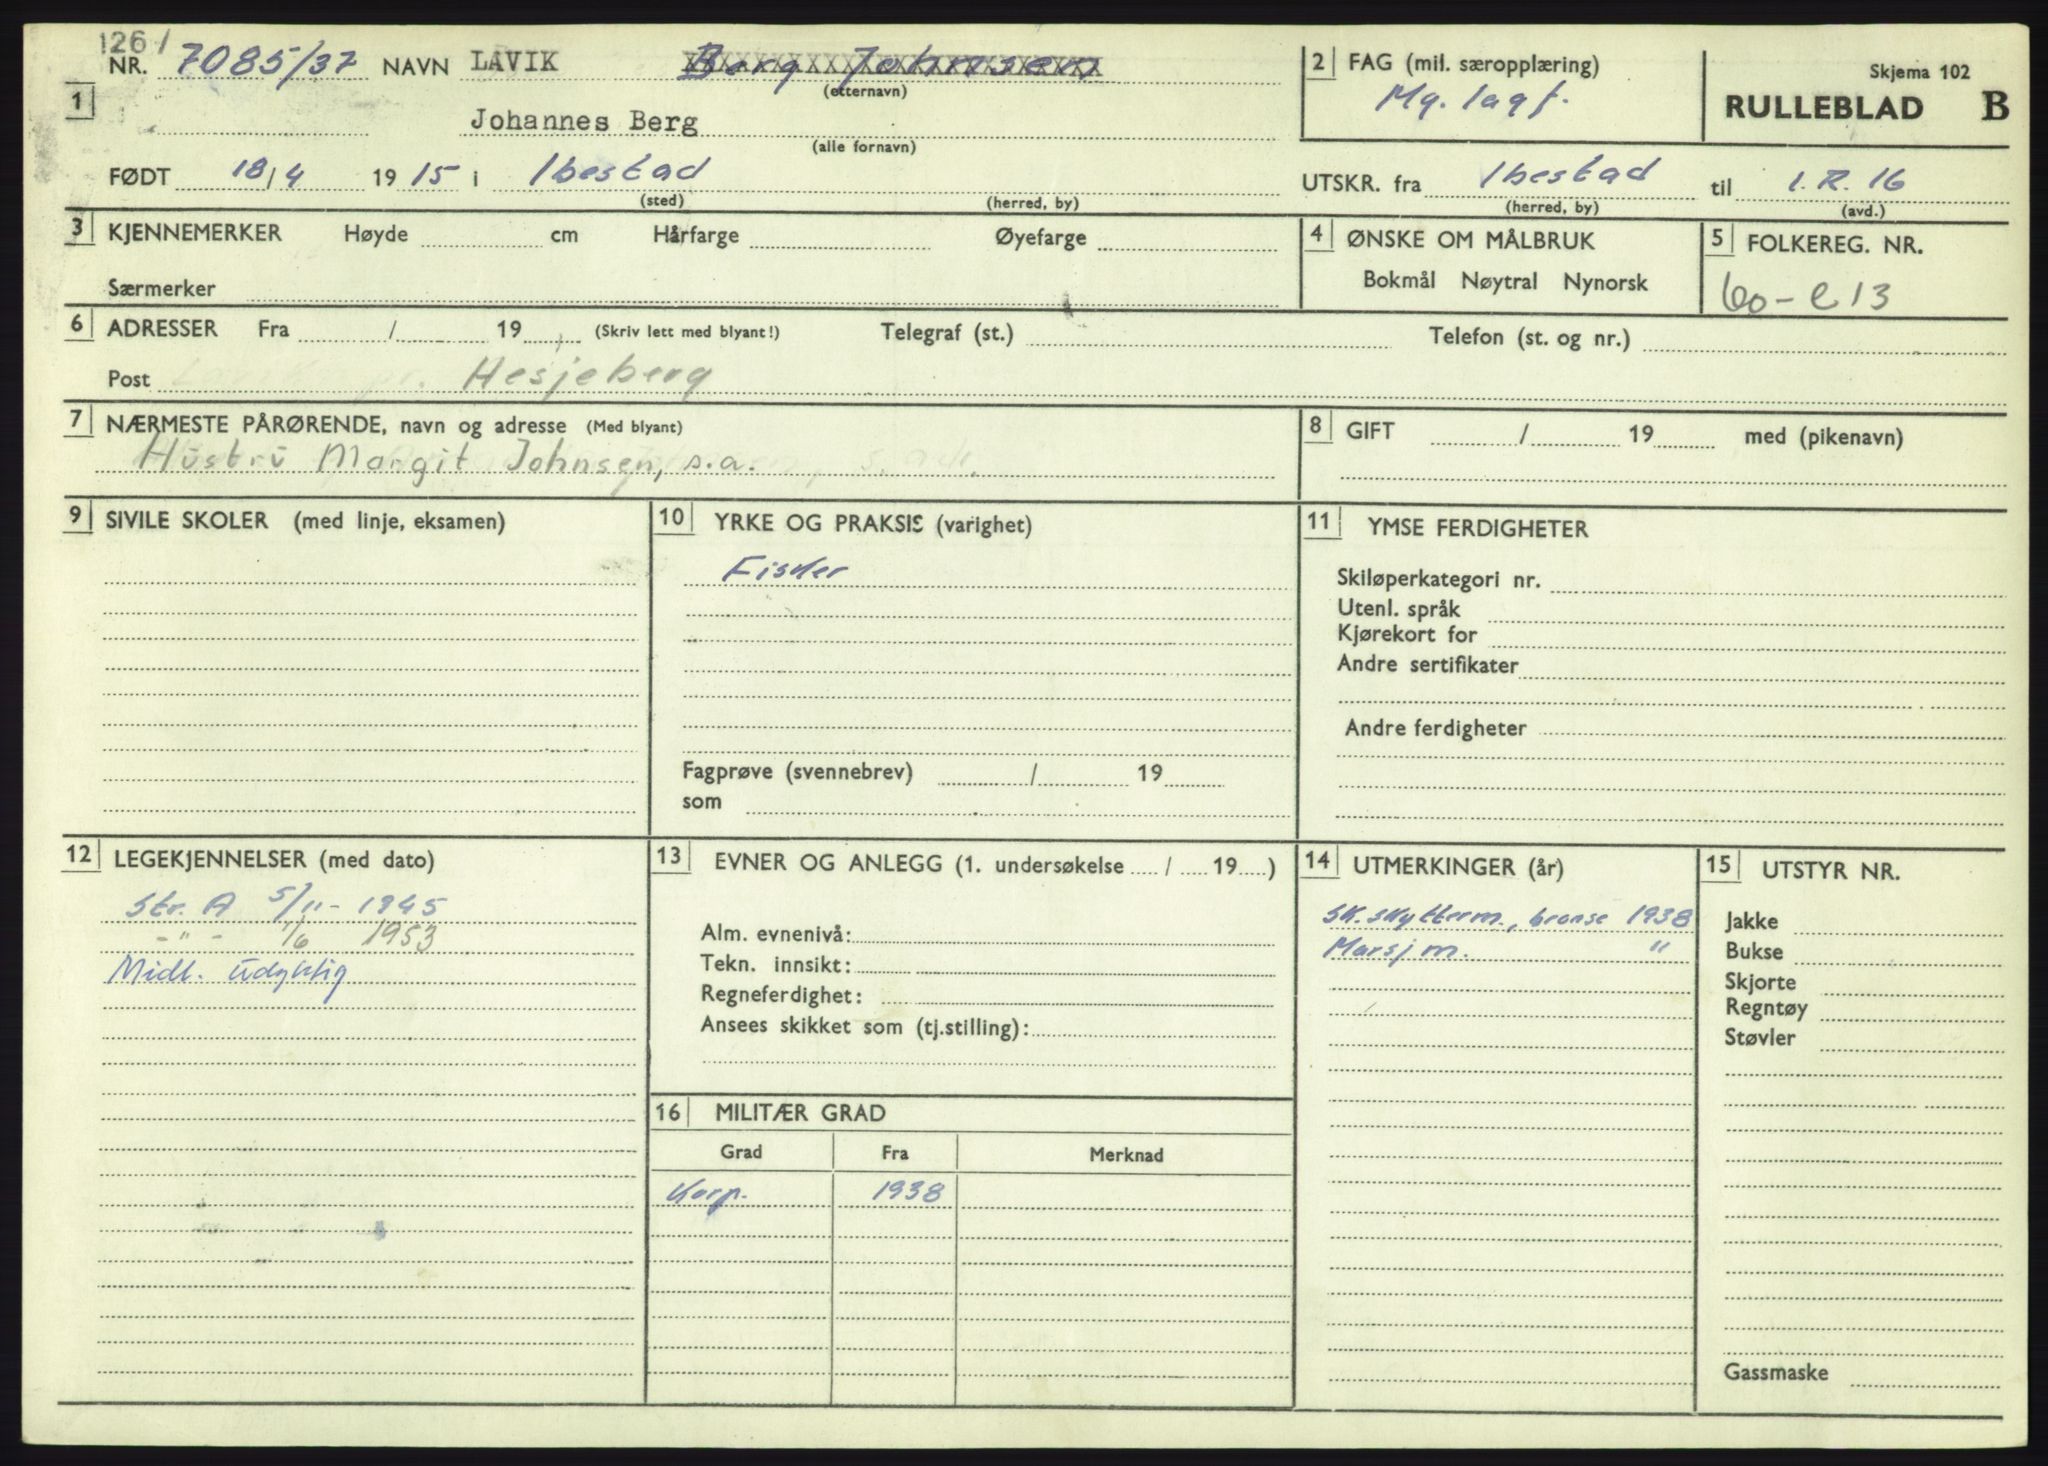 1261
NR. 7085/37 NAVN LAVIK Berg Johnsen
(etternavn)
2 FAG (mil. særopplæring)
Mg. lagf.
Skjema 102
RULLEBLAD B
1
Johannes Berg
(alle fornavn)
FØDT 18/4 1915 i Ibestad
(sted) (herred, by)
UTSKR. fra Ibestad til I.R. 16
(herred, by) (avd.)
3 KJENNEMERKER Høyde cm Hårfarge Øyefarge
Særmerker
4 ØNSKE OM MÅLBRUK
Bokmål Nøytral Nynorsk
5 FOLKEREG. NR.
60-e 13
6 ADRESSER Fra / 19 (Skriv lett med blyant!) Telegraf (st.) Telefon (st. og nr.)
Post Hesjeberg
7 NÆRMESTE PÅRØRENDE, navn og adresse (Med blyant)
Hustru Margit Johnsen, s.a.
8 GIFT / 19 med (pikenavn)
9 SIVILE SKOLER (med linje, eksamen)
10 YRKE OG PRAKSIS (varighet)
Fisker
Fagprøve (svennebrev) / 19
som
11 YMSE FERDIGHETER
Skiløperkategori nr.
Utenl. språk
Kjørekort for
Andre sertifikater
Andre ferdigheter
12 LEGEKJENNELSER (med dato)
Str. A 5/11- 1945
-"- 1/6 1953
Midl. udyktig
13 EVNER OG ANLEGG (1. undersøkelse / 19 )
Alm. evnenivå:
Tekn. innsikt:
Regneferdighet:
Ansees skikket som (tj.stilling):
14 UTMERKINGER (år)
Sk. skytterm., bronse 1938
Marsjm. "
15 UTSTYR NR.
Jakke
Bukse
Skjorte
Regntøy
Støvler
Gassmaske
16 MILITÆR GRAD
Grad Fra Merknad
Korp. 1938